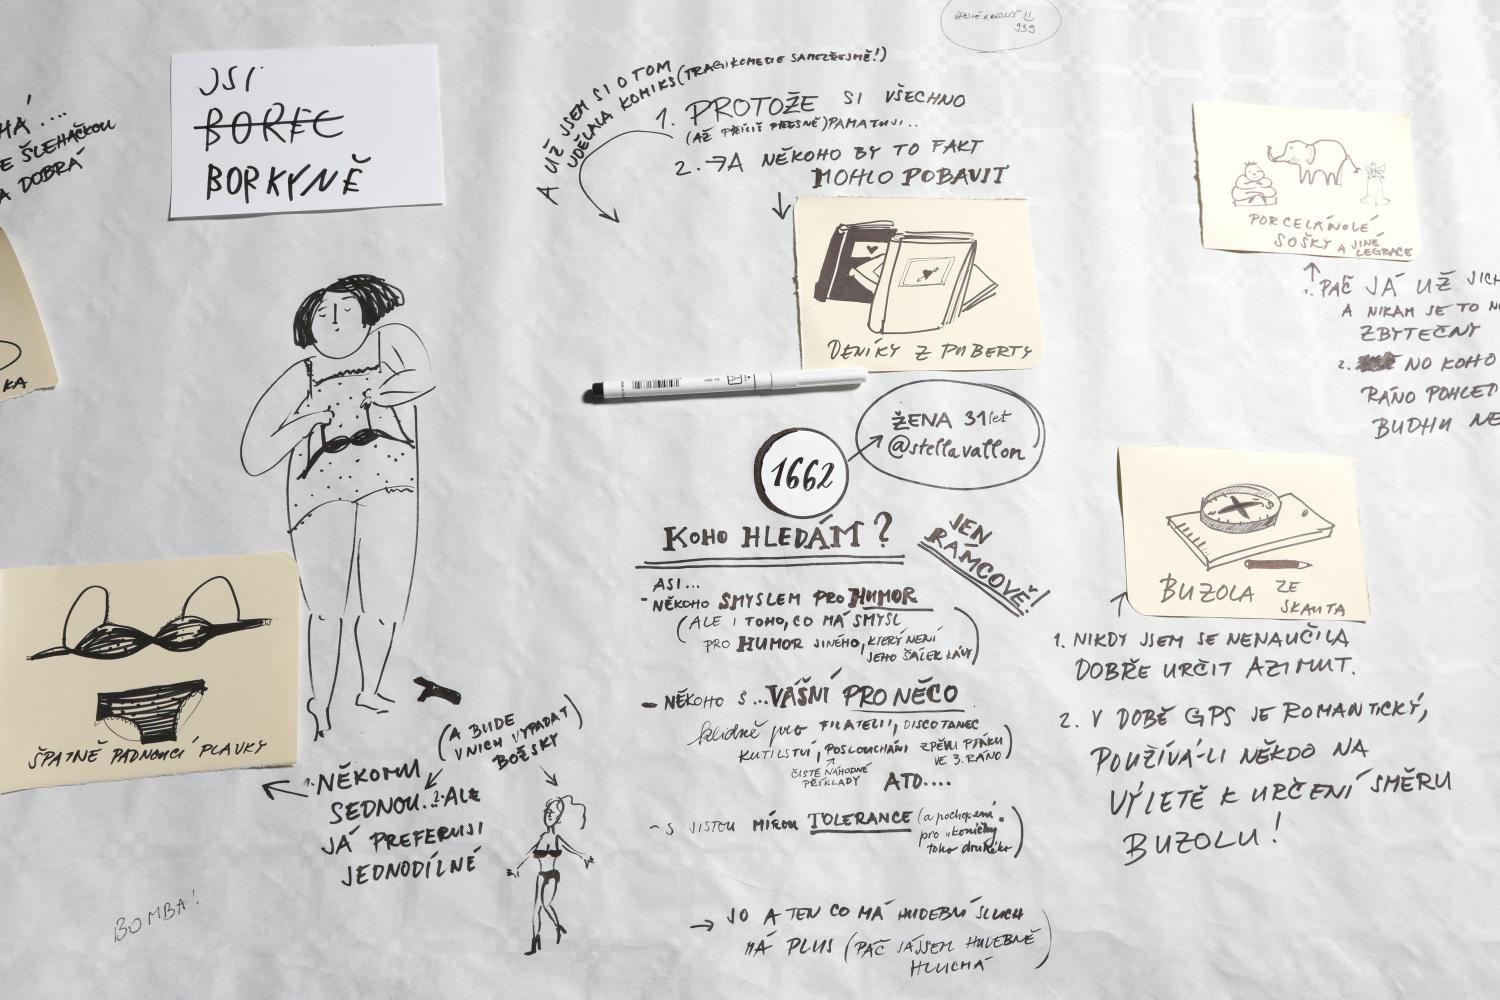 HÁ....
E ŠLEHAČKOU
A DOBRÁ
KA
JSI
BOREC
BORKYNĚ
A UŽ JSEM SI O TOM
UDĚLALA KOMIKS (TRAGIKOMEDIE SAMOZŘEJMĚ!)
1. PROTOŽE SI VŠECHNO
(AŽ PŘÍLIŠ PŘESNĚ) PAMATUJI..
2. → A NĚKOHO BY TO FAKT
MOHLO POBAVIT
DENÍKY Z PUBERTY
939
PORCELÁNOVÉ
SOŠKY A JINÉ
LEGRACE
1. PAČ JÁ UŽ JICH
A NIKAM SE TO
ZBYTEČNÝ
2. NO KOHO
RÁNO POHLED
BUDHU NE
ŽENA 31 let
@stellavallon
1662
KOHO HLEDÁM?
JEN
RÁMCOVĚ!
ASI...
- NĚKOHO SMYSLEM PRO HUMOR
(ALE I TOHO, CO MÁ SMYSL
PRO HUMOR JINÉHO, KTERÝ NENÍ
JEHO ŠÁLEK KÁVY)
- NĚKOHO S... VÁŠNÍ PRO NĚCO
klidně pro FILATELII, DISCOTANEC
KUTILSTVÍ, POSLOUCHÁNÍ ZPĚVU PTÁKŮ
VE 3. RÁNO)
ČISTĚ NÁHODNÉ
PŘÍKLADY
ATD....
- S JISTOU MÍROU TOLERANCE (a pochopení
pro "koníčky"
toho druhého)
→ JO A TEN CO MÁ HUDEBNÍ SLUCH
MÁ PLUS (PAČ JÁ JSEM HUDEBNĚ
HLUCHÁ)
BUZOLA ZE
SKAUTA
1. NIKDY JSEM SE NENAUČILA
DOBŘE URČIT AZIMUT.
2. V DOBĚ GPS JE ROMANTICKÝ,
POUŽÍVÁ-LI NĚKDO NA
VÝLETĚ K URČENÍ SMĚRU
BUZOLU!
ŠPATNĚ PADNOUCÍ PLAVKY
1. NĚKOMU
SEDNOU.. 2. ALE
JÁ PREFERUJI
JEDNODÍLNÉ
(A BUDE
V NICH VYPADAT
BOŽSKY)
BOMBA!